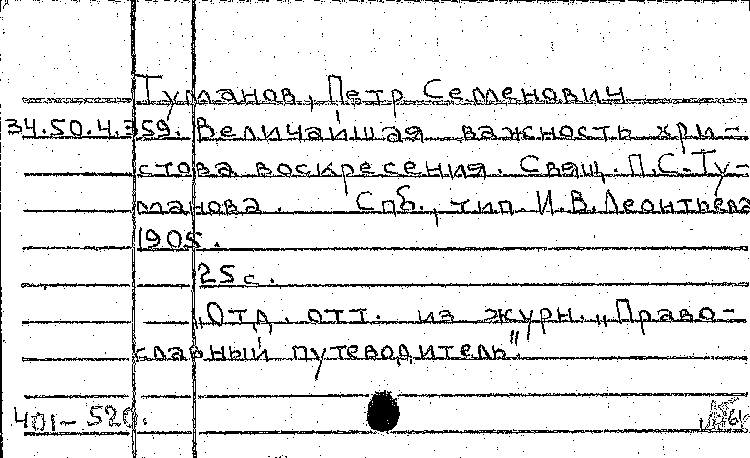 Туманов, Петр Семенович
34.50.4.359. Величайшая важность хри-
стова воскресения. Свящ. П.С. Ту-
манова. Спб., тип. И.В. Леонтьева
1905.
25 с.
„Отд. отт. из журн. „Право-
славный путеводитель"
401-520.